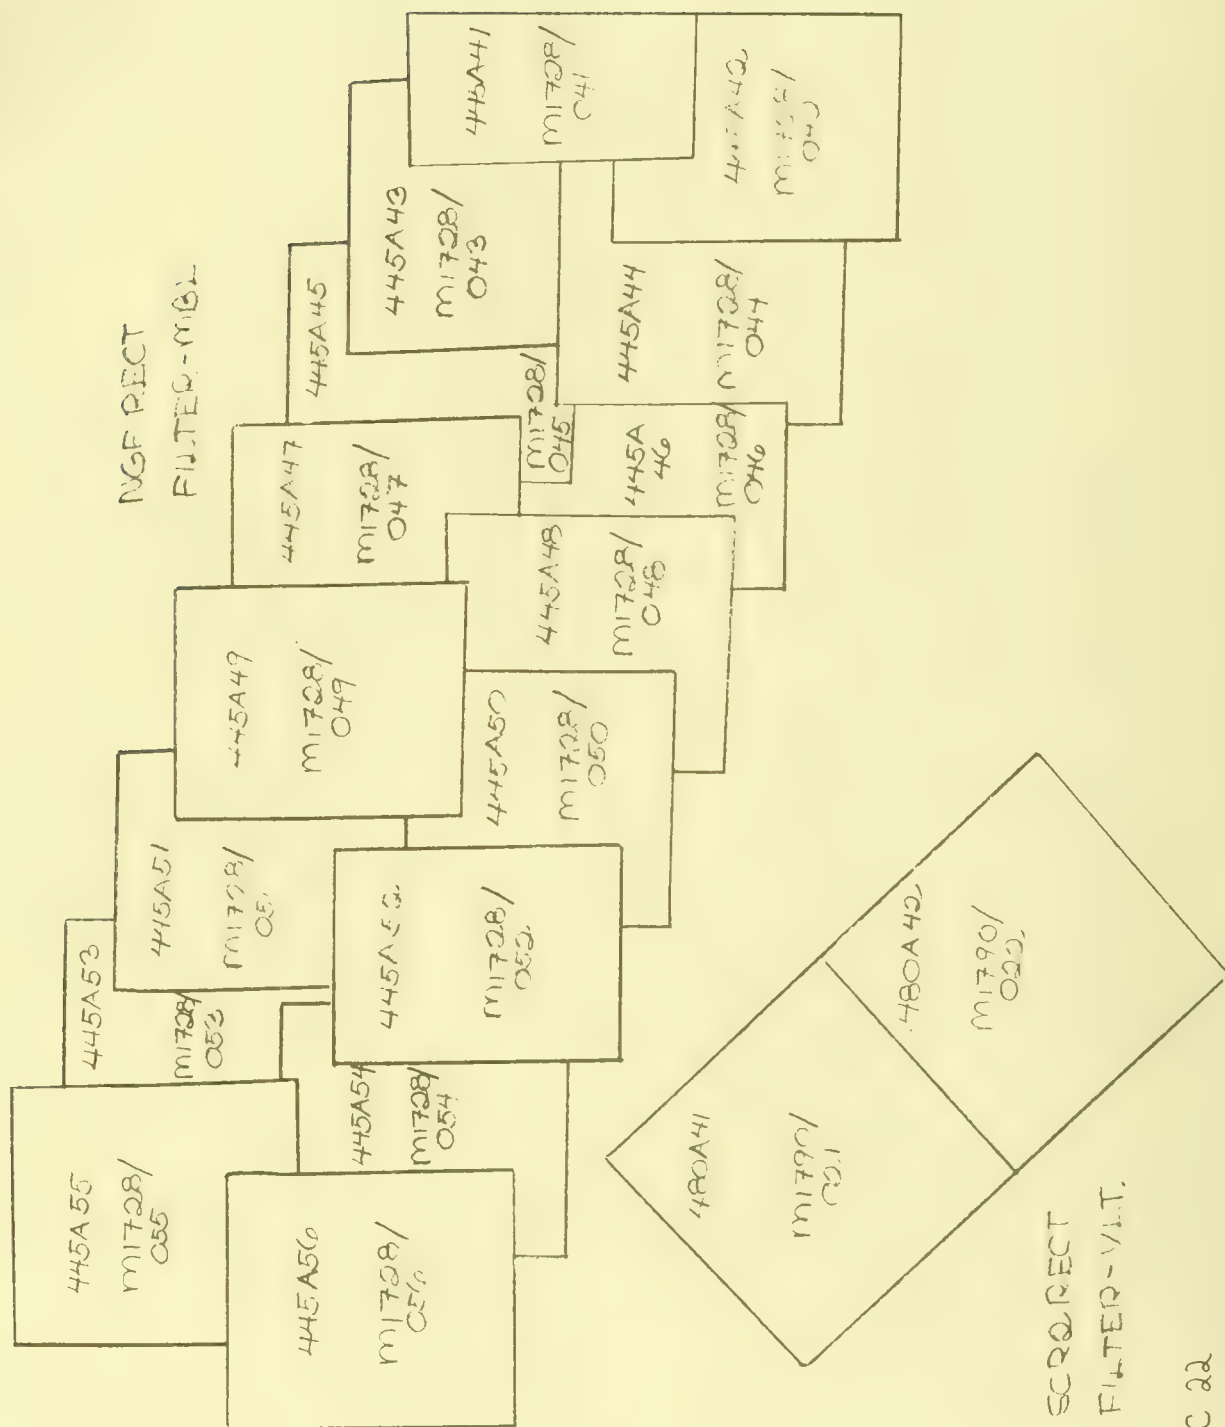 NGF RECT
FILTER-MB2
445A41
M1728/
041
445A42
445A43
M1728/
043
445A44
M1728/
044
445A45
M1728/
045
445A
46
M1728/
046
445A47
M1728/
047
445A48
M1728/
048
445A49
M1728/
049
445A50
M1728/
050
445A51
M1728/
445A52
M1728/
052
445A53
M1728/
053
445A54
M1728/
054
445A55
M1728/
055
445A56
M1728/
056
480A41
M1790/
480A42
M1790/
022
FILTER-VLT.
C 22